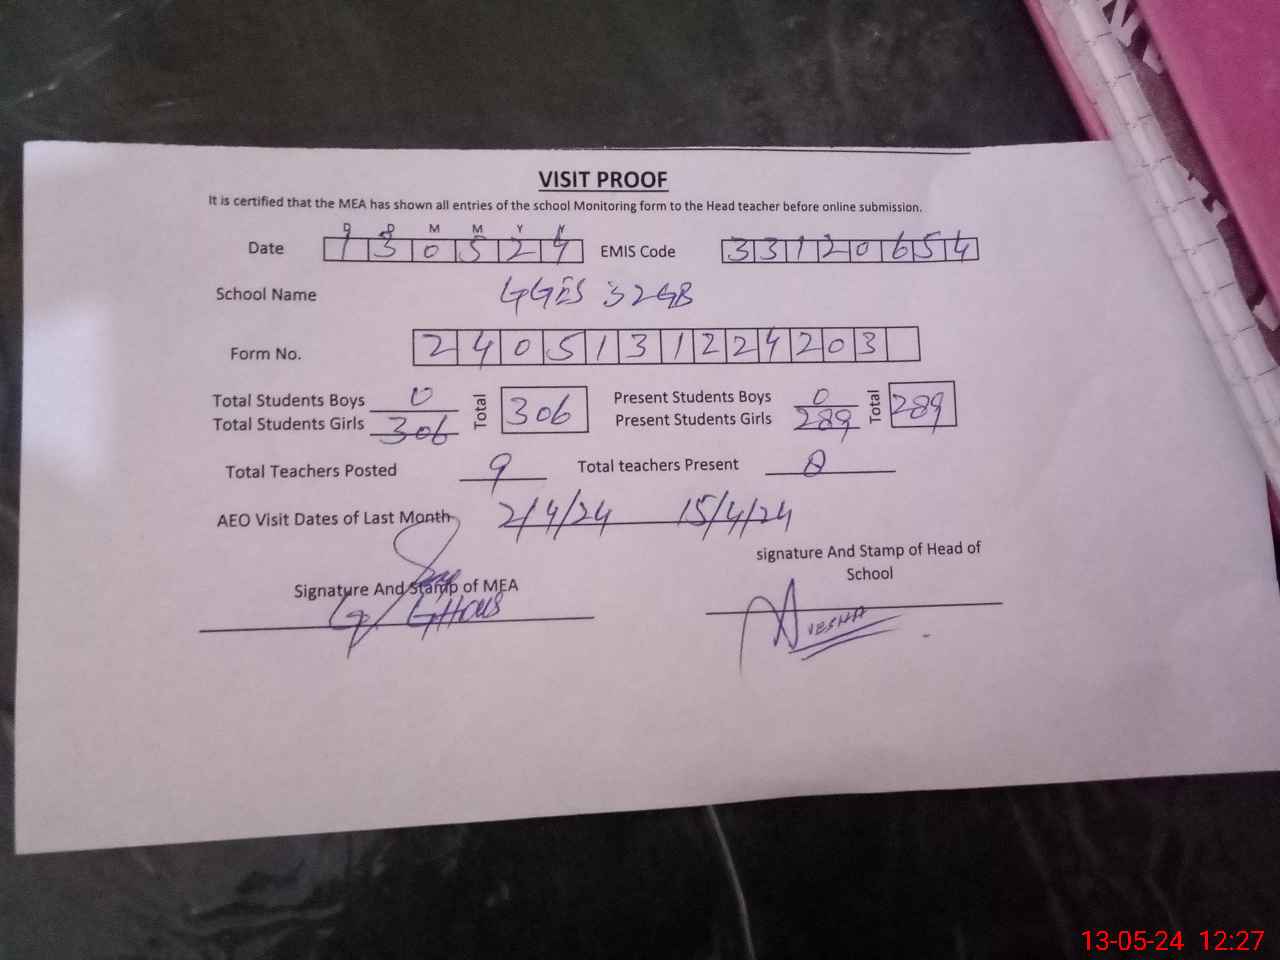 VISIT PROOF
It is certified that the MEA has shown all entries of the school Monitoring form to the Head teacher before online submission.
D D M M Y Y
Date 1 3 0 5 2 4 EMIS Code 3 3 1 2 0 6 5 4
School Name GGES 32GB
Form No. 2 4 0 5 1 3 1 2 2 4 2 0 3
Total Students Boys 0 Total 306 Present Students Boys 0 Total 289
Total Students Girls 306 Present Students Girls 289
Total Teachers Posted 9 Total teachers Present
AEO Visit Dates of Last Month 2/4/24 15/4/24
signature And Stamp of Head of School
Signature And Stamp of MEA
13-05-24 12:27